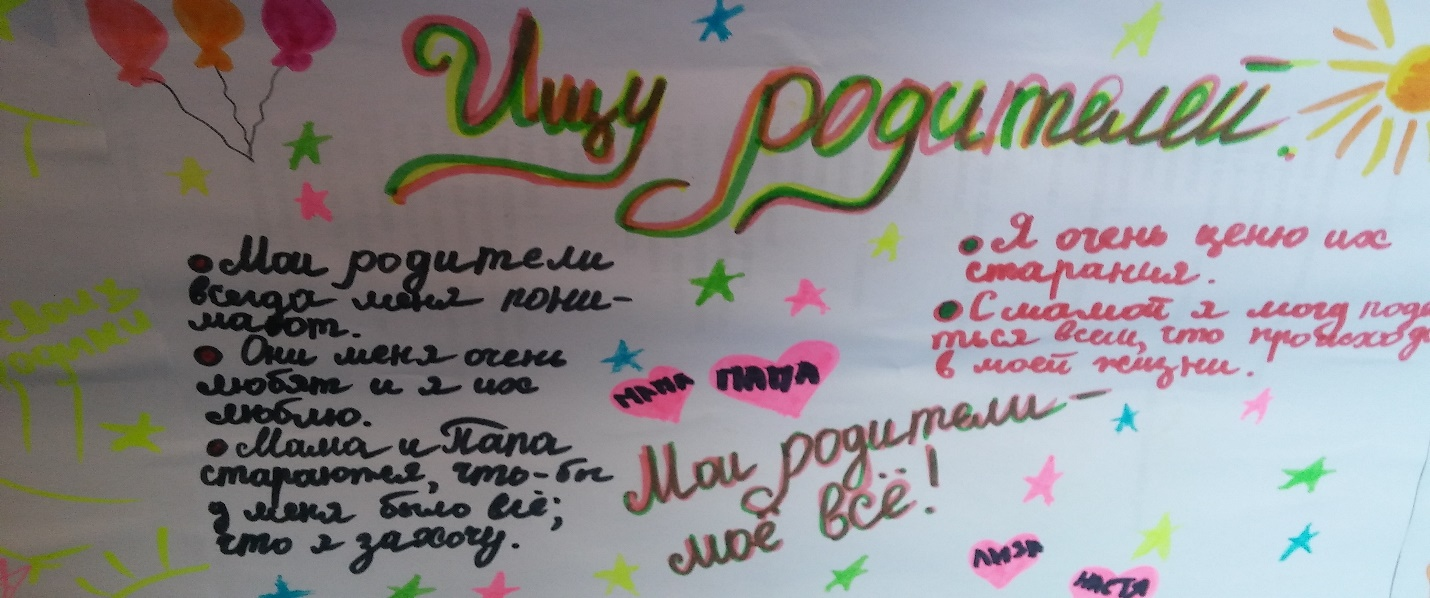 Ищу родителей.
• Мои родители
всегда меня пони-
мают.
• Они меня очень
люблят и я их
люблю.
• Мама и Папа
стараются, что-бы
у меня было всё;
что я захочу.
МАМА ПАПА
Мои родители -
моё всё!
• Я очень ценю их
старания.
• С мамой я могу поде
ться всем, что происход
в моей жизни.
ЛИЗА
НАСТЯ